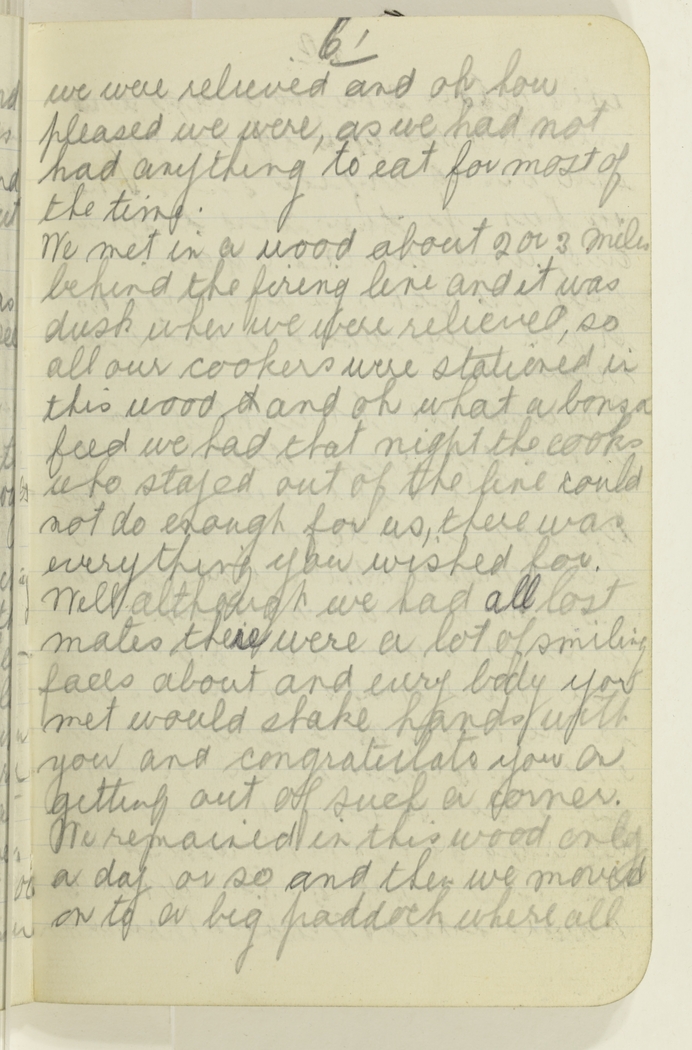 61
we were relieved and oh how
pleased we were, as we had not
had anything to eat for most of
the time.
We met in a wood about 2 or 3 miles
behind the firing line and it was
dusk when we were relieved, so
all our cookers were stationed in
this wood & and oh what a bonza
feed we had that night the cooks
who stayed out of the line could
not do enough for us, there was
everything you wished for.
Well although we had all lost
mates there were a lot of smiling
faces about and every body you
met would shake hands with
you and congratulate you on
getting out of such a corner.
We remained in this wood only
a day or so and then we moved
on to a big paddock where all